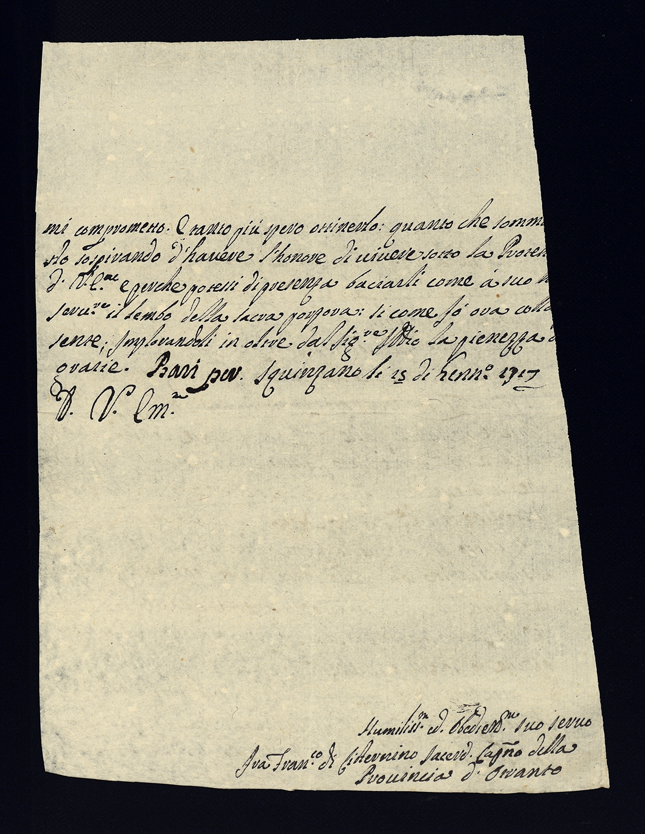 mi comprometto. E tanto più spero ottenerlo: quanto che somm
sto sospirando d'havere l'honore di vivere sotto la Proten
d' V. Em.^za e perche potessi di presenza baciarli come à suo
serv.^re il lembo della sacra porpora: si come fò ora colla
sente; Implorandoli in oltre dal Sig.^re Iddio la pienezza d
grazie. Bari per Squinzano li 15 di Genn.^o 1717
D. V. Em.^za
Humiliss.^mo ed Obedien.^mo suo servo
Fra Fran.^co di Cisternino Sacerd. Capp.^no della
Provincia d' Otranto